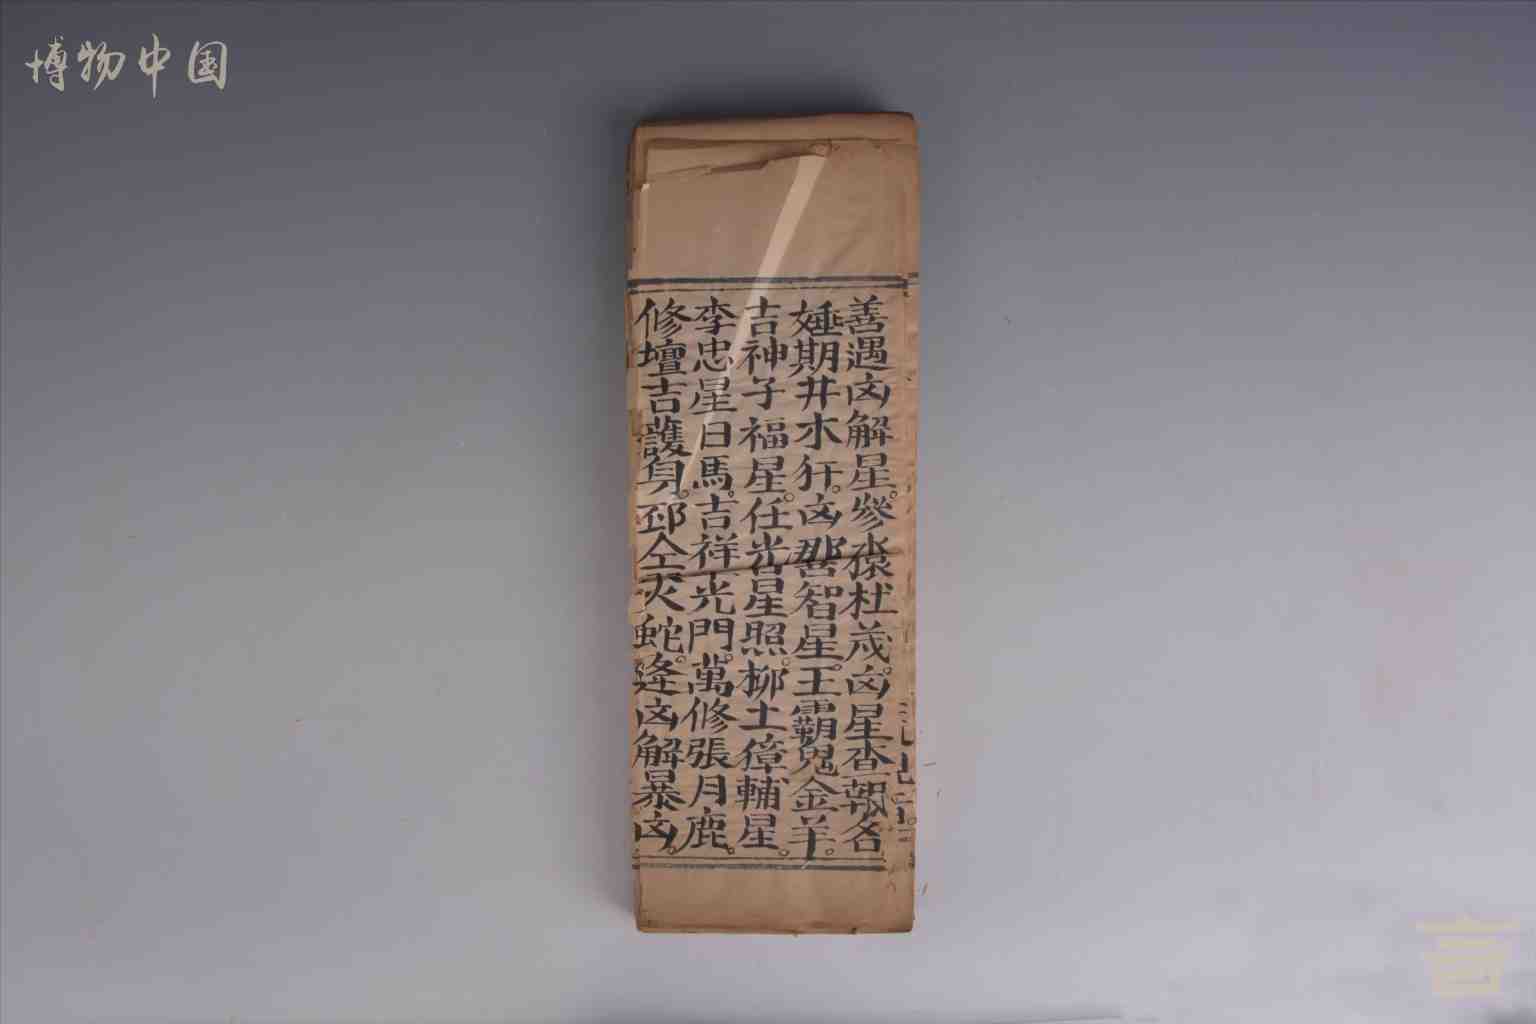 博物中国
善遇凶解星。參水猿杜茂。凶星查報各
娷期井木犴。凶惡智星。王霸鬼金羊。
吉神子福星。任光星照。柳土獐輔星。
李忠星日馬。吉祥光門。萬修張月鹿。
修壇吉護身。邳仝灾蛇。逢凶解暴凶。